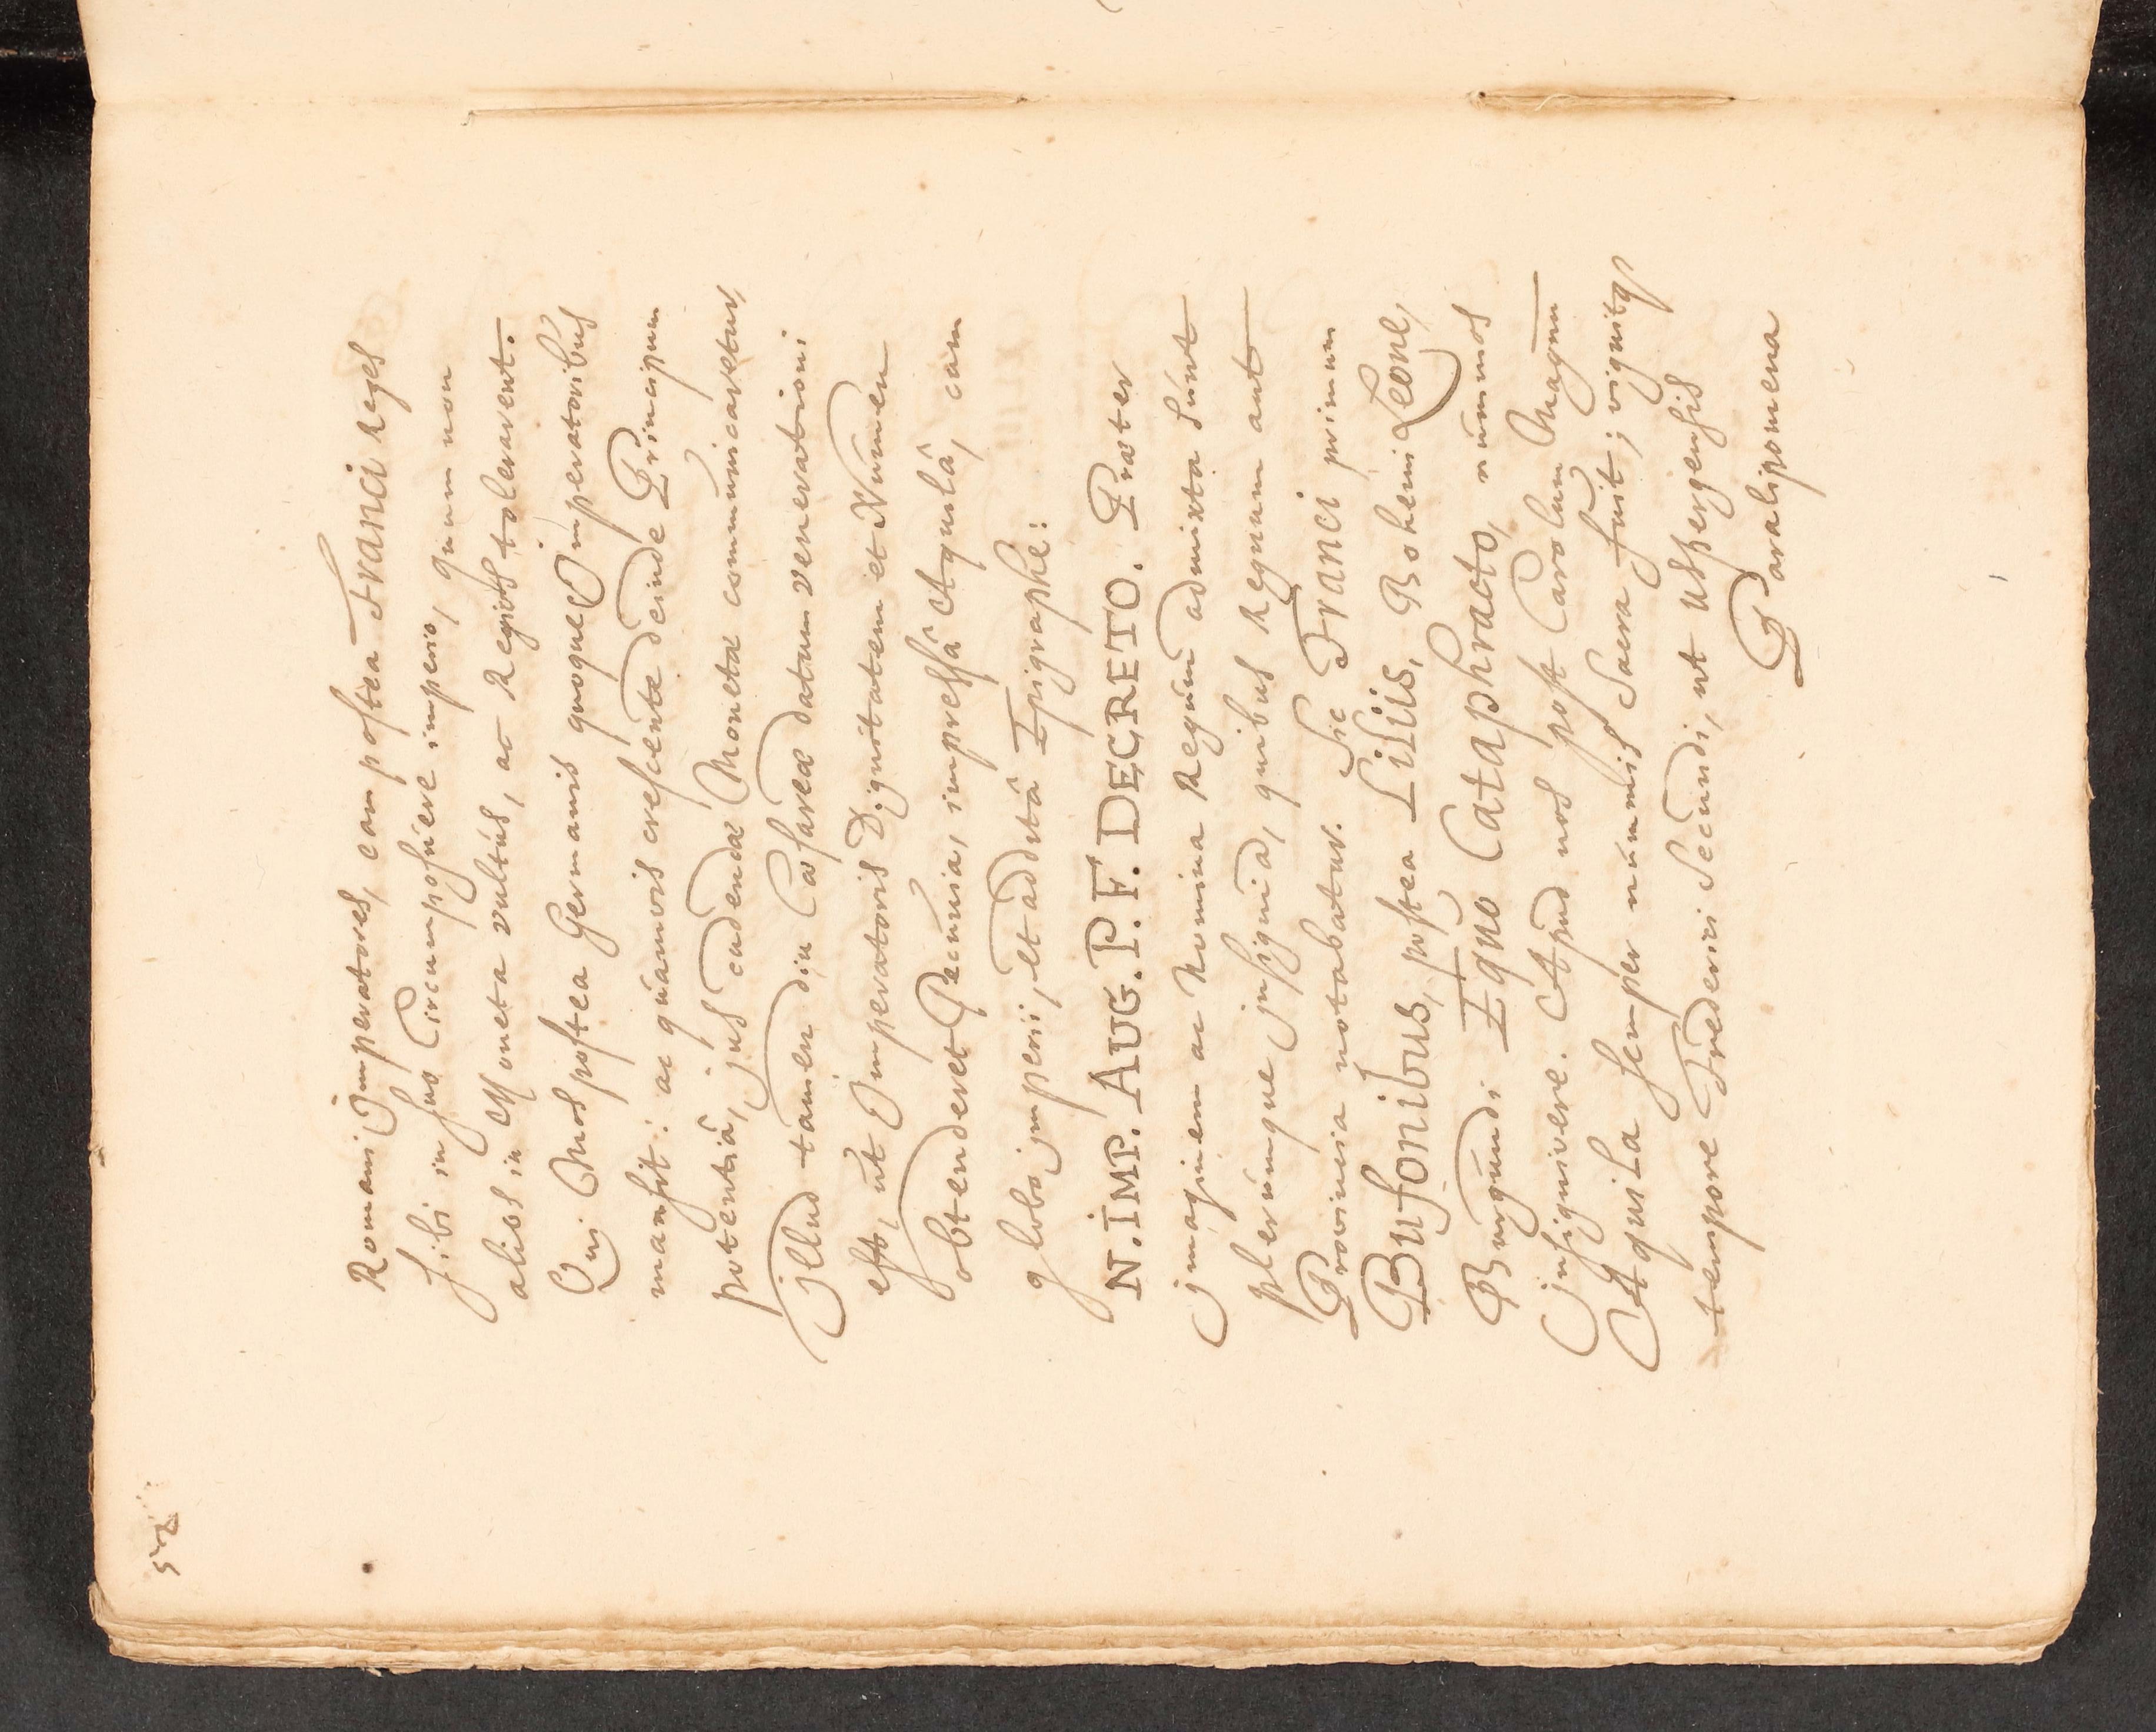 Romani Imperatores, eam postea Franci Reges
sibi in suo Circumposuere imperio, quum non
alios in Moneta vultus, ac Regios tolerarent.
Qui Mos postea Germanis quoque Imperatoribus
mansit: ac quamvis crescente deinde Principum
potentiâ, jus cudendæ Monetæ communicaretur,
illud tamen diu Cæsareæ datum venerationi
est, ut Imperatoris Dignitatem et Numen
obtenderet Pecunia, impressâ Aquilâ, cum
globo imperii, et additâ Epigraphe:
N. IMP. AUG. P. F. DECRETO. Præter
imaginem ac Nomina Regum admixta sunt
plerumque insignia, quibus Regnum aut
Provincia notabatur. Sic Franci primum
Bufonibus, postea Liliis, Bohemi Leone,
Burgundi Equo Cataphracto, nummos
insignivere. Apud nos post Carolum Magnum
Aquila semper nummis Sacra fuit; viguitq3
tempore Friderici Secundi, ut Uspergensis
Paralipomena